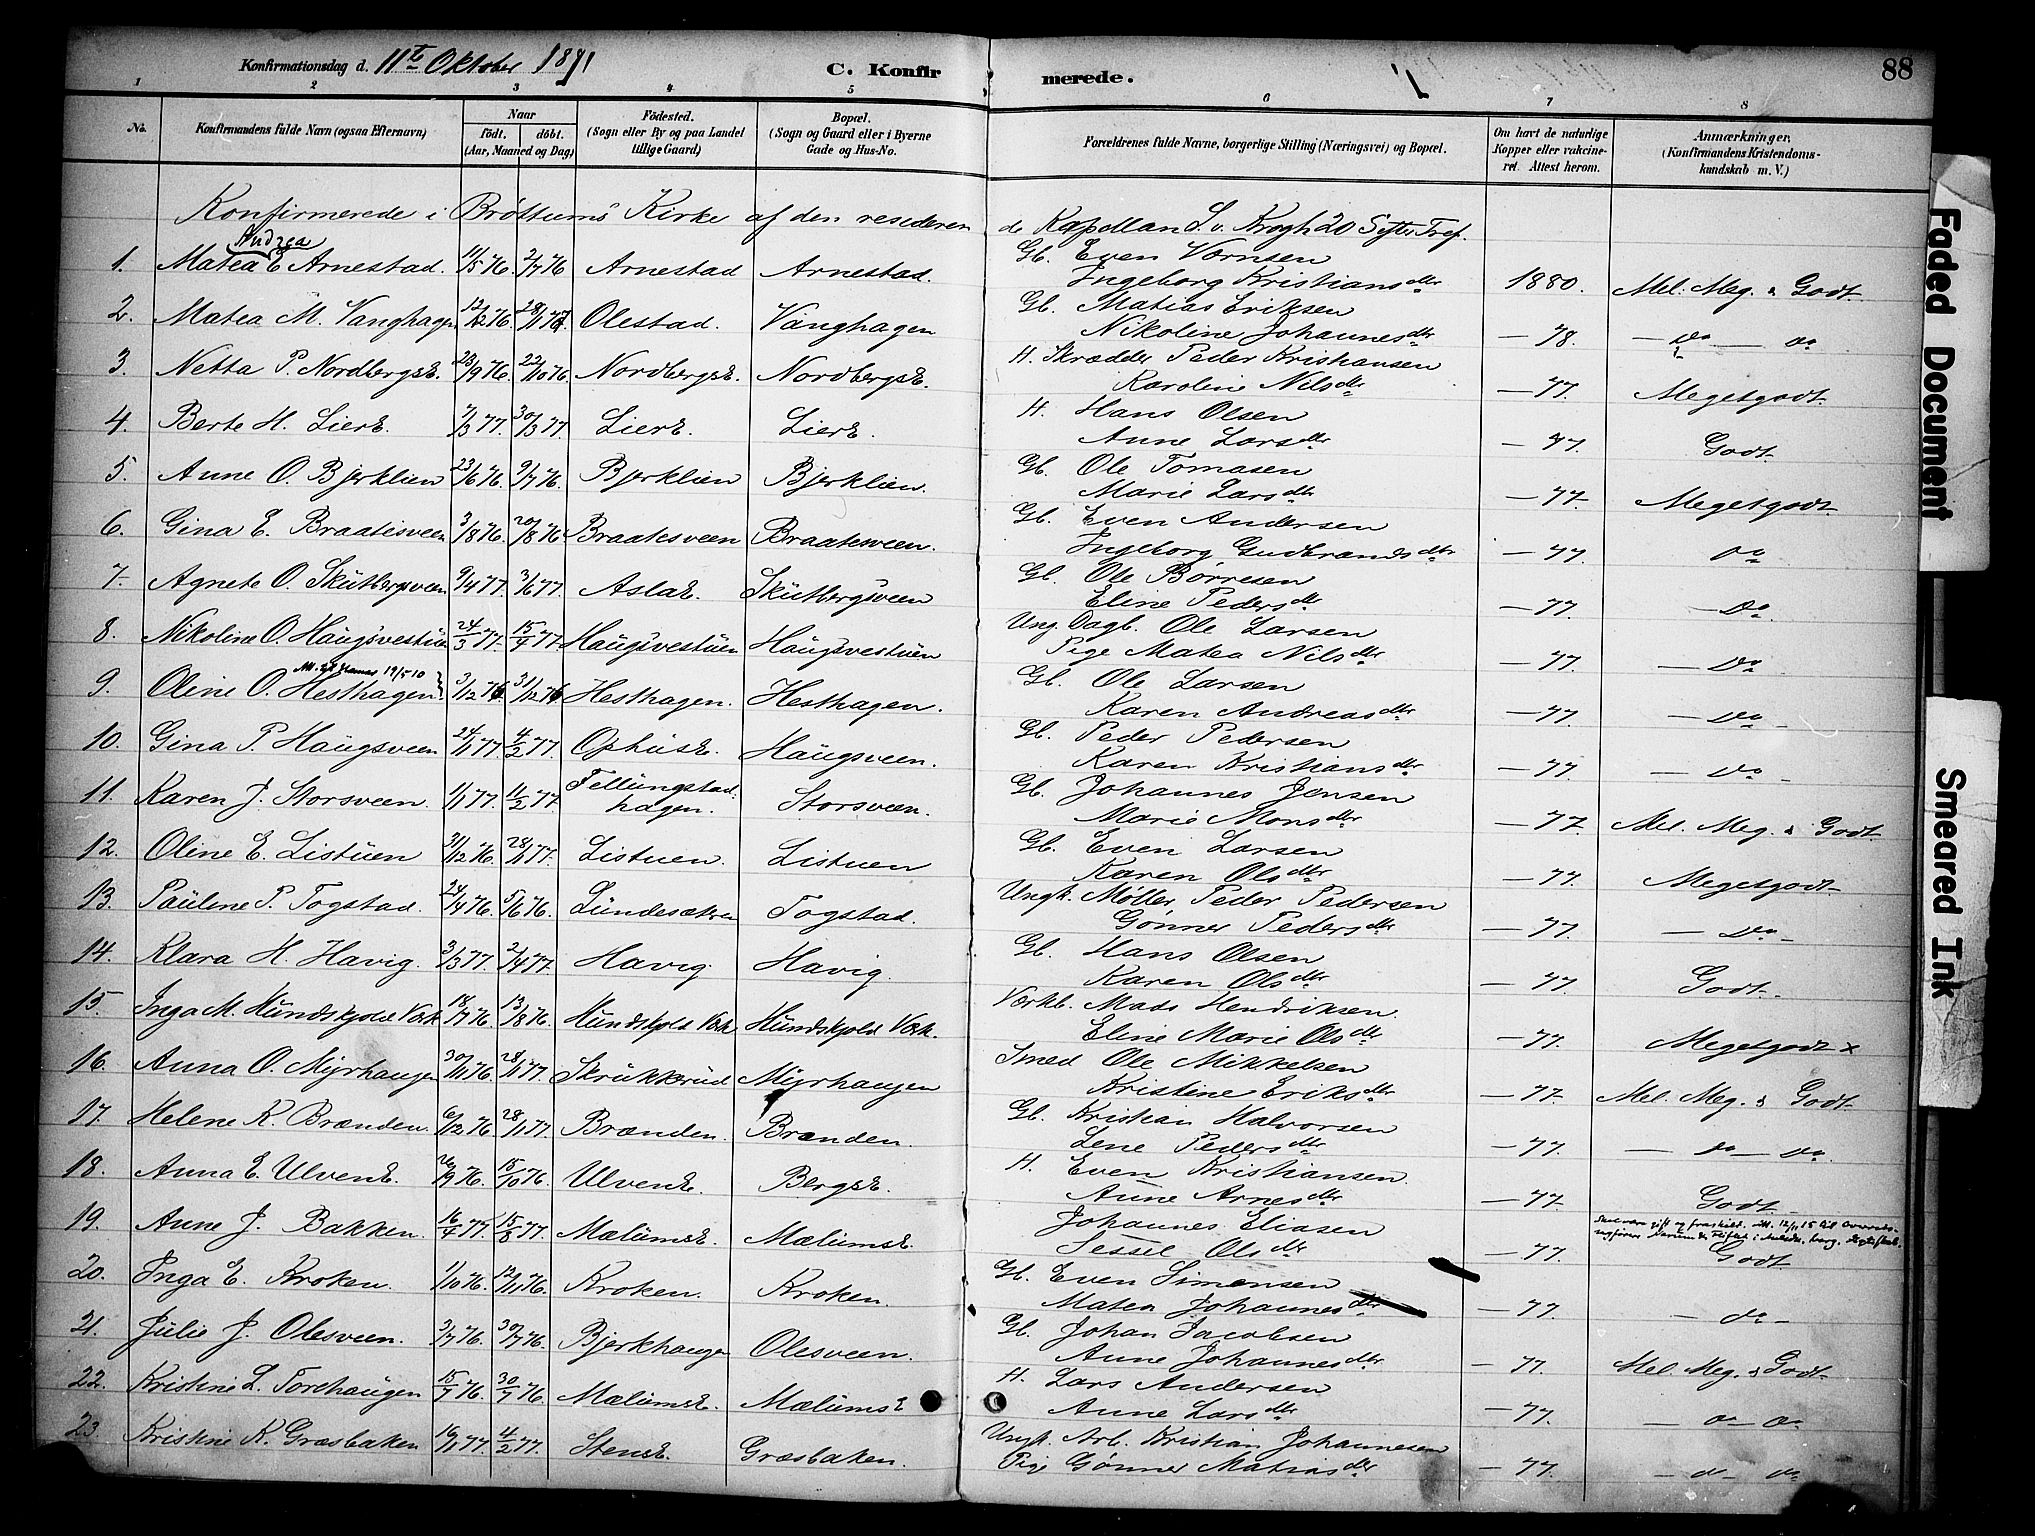 Konfirmationsdag d. 11te Oktober 1891 C. Konfirmerede. 88
1 2 3 4 5 6 7 8
No. Konfirmandens fulde Navn (ogsaa Efternavn) Naar födt. döbt. (Aar, Maaned og Dag) Födested. (Sogn eller By og paa Landet tillige Gaard) Bopæl. (Sogn og Gaard eller i Byerne Gade og Hus-No. Forældrenes fulde Navne, borgerlige Stilling (Næringsvei) og Bopæl. Om havt de naturlige Kopper eller vakcineret. Attest herom. Anmærkninger, (Konfirmandens Kristendomskundskab m. V.)
Konfirmerede i Brøttums Kirke af den residerende Kapellan S. v. Krogh 20 S. efter Tref.
Andrea
1. Matea E Arnestad. 11/5 76. 2/7 76 Arnestad Arnestad. Gb. Even
Ingeborg Kristiansdtr 1880. Mel. Meg. & Godt
2. Matea M. Vanghagen 12/12 76. Olestad. Vanghagen Gb. Matias Eriksen
Nikoline Johannesdtr — 78. — do — do
3. Netta P. NordbergsE. 23/9 76. 22/10 76. NordbergsE. NordbergsE. H. Skrædder Peder Kristiansen
Karolin Nilsdtr — 77. Megetgodt.
4. Berte H. LierE. 7/3 77. 30/3 77. LierE. LierE. H. Hans Olsen
Anne Larsdtr — 77. Godt.
5. Anne O. Bjerklien 23/6 76. 9/7 76. Bjerklien Bjerklien. Gb. Ole Tomasen
Marie Larsdtr — 77. Megetgodt.
6. Gina E. Braatesveen 3/8 76. 20/8 76 Braatesveen Braatesveen. Gb. Even Andersen
Ingeborg Gudbrandsdtr — 77. do
7. Agnete O. Skutbergsveen 9/4 77. 3/6 77. AslaE. Skutbergsveen Gb. Ole Børresen
Eline Pedersdtr — 77 — Do.
8. Nikoline O. Haugsvestuen 24/3 77. 15/4 77. Haugsvestuen Haugsvestuen Ung. Dagb. Ole Larsen
Pige Matea Nilsdtr — 77. — Do
Att. til Hamar 19/5 10
9. Oline O. Hesthagen 3/12 76 31/12 76 Hesthagen. Hesthagen. Gb. Ole Larsen
Karen Andreasdtr — 77. — Do -
10. Gina P. Haugsveen 24/1 77. 4/2 77. OphusE. Haugsveen. Gb. Peder Pedersen
Karen Kristiansdtr — 77. — Do -
11. Karen J. Storsveen 1/1 77. 11/2 77. Fellungstad-
hagen. Storsveen. Gb. Johannes Jensen
Marie Monsdtr — 77. Mel. Meg. & Godt
12. Oline E. Listuen 31/12 76. 28/1 77. Listuen. Listuen Gb. Even Larsen
Karen Olsdtr — 77. Megetgodt.
13. Pauline P. Togstad. 24/4 76. 5/6 76. Lundesæteren Togstad. Ungk. Møller Peder Pedersen
Gønner Pedersdtr — 77. — Do -
14. Klara H. Havig. 3/3 77. 2/4 77. Havig Havig. Gb. Hans Olsen
Karen Olsdtr — 77. Godt.
15. Inga M. Hundskjold Værk 18/7 76. 13/8 76. Hundskjold Værk Hundskjold Værk. Værkb. Mads Hendriksen.
Eline Marie Olsdtr — 77. Megetgodt x
16. Anna O. Myrhaugen 30/11 76. 28/1 77. Skrukkerud Myrhaugen Smed Ole Mikkelsen
Kristine Eriksdtr — 77. Mel. Meg. & Godt.
17. Helene K. Brænden. 6/12 76 28/1 77. Brænden. Brænden. Gb. Kristian Halvorsen
Lene Pedersdtr — 77. — do — do.
18. Anna E. UlvenE. 26/9 76. 15/10 76. UlvenE. BergsE. H. Even Kristiansen.
Anne Arnesdtr — 77. Godt.
19. Anne J. Bakken. 16/4 77. 15/8 77. MælumsE. MælumsE. Johannes Eliasen
Skal være gift og fraskilt. Att. 12/11 15 til
Sessel Olsdtr — 77. Godt.
20. Inga E. Kroken. 1/10 76. 12/11 76. Kroken. Kroken. Gb. Even Simensen
Matea Johannesdtr — 77. — do -
21. Julie J. Olesveen. 3/7 76. 30/7 76. Bjerkhaugen Olesveen. Gb. Johan Jacobsen
Anne Johannesdtr — 77. Mel. Meg. & Godt.
22. Kristine L. Torehaugen 15/7 76. 30/7 76. MælumsE. MælumsE H. Lars Andersen
Anne Larsdtr — 77. — do — do
23. Kristine K. Græsbaken 16/1 77. 4/2 77. StensE. Græsbaken. Ungk. Arb. Kristian Johannesen
Pige Gønner Matiasdtr — 77. — do — do
Faded Document
Smeared Ink